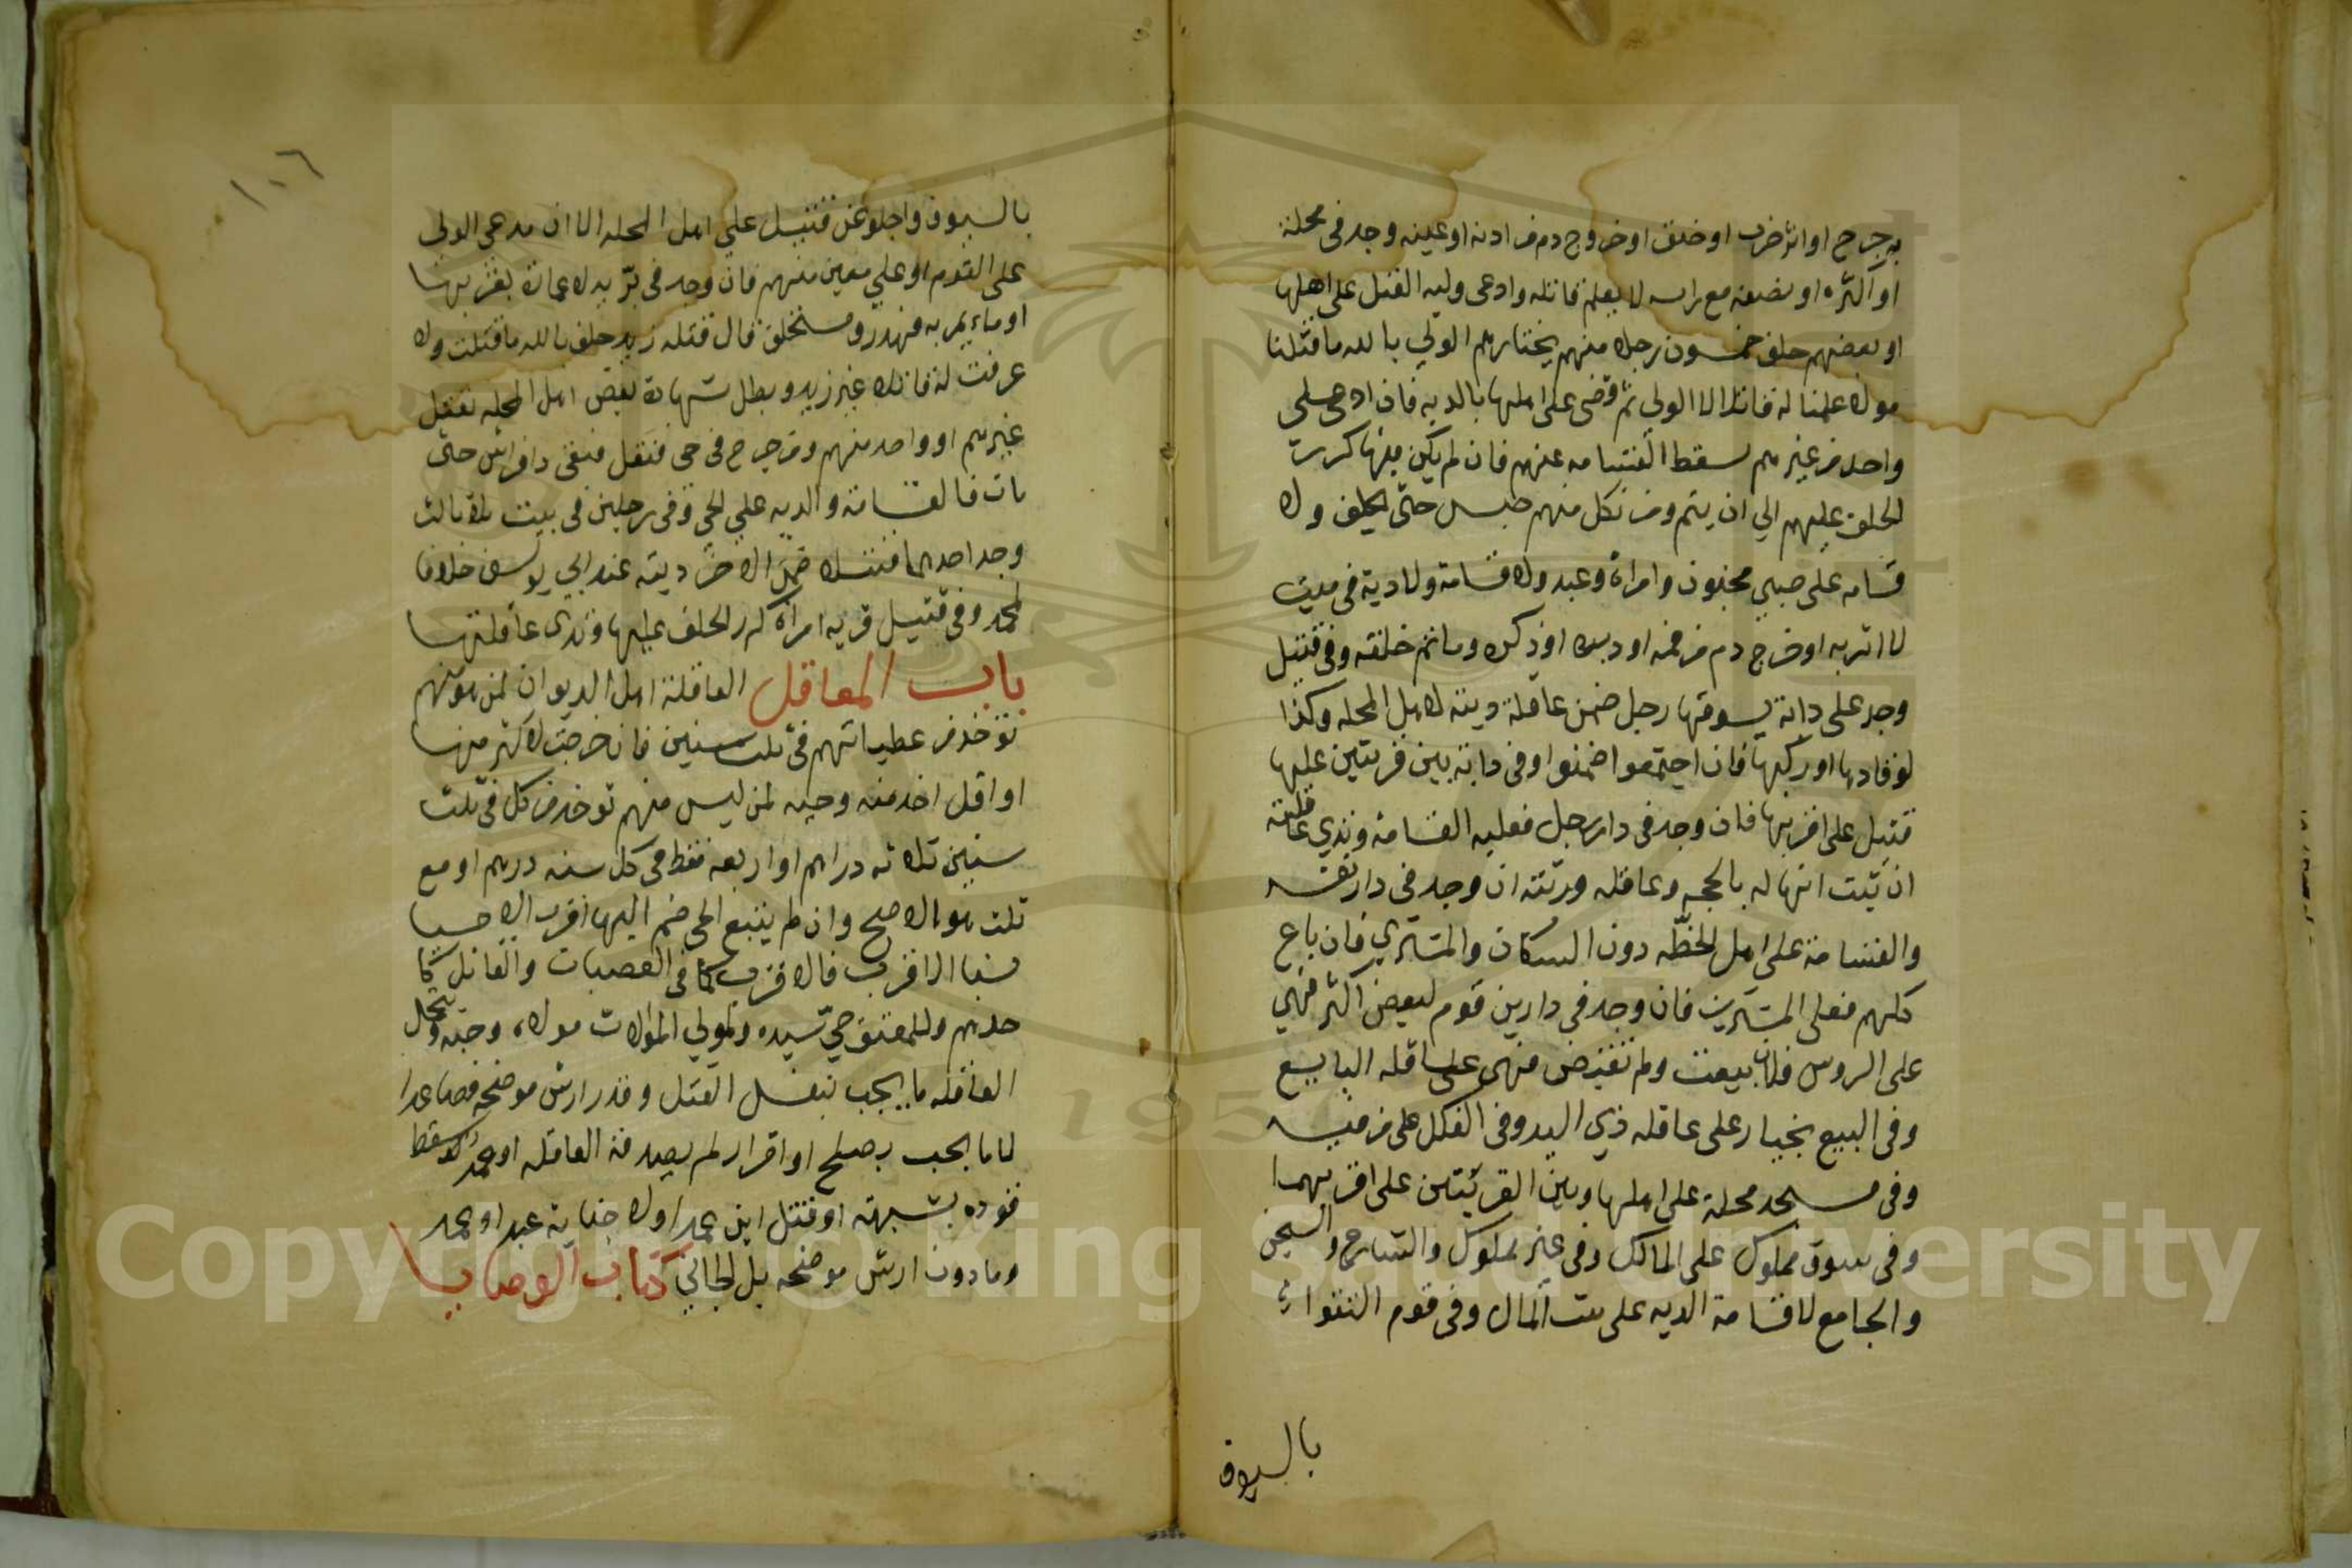 به جرح او اثر ضرب او خنق او خروج دم من اذنه او عينه وجد فى محلة
او اكثره او نصفه مع راسه لا يعلم قاتله وادعى وليه القتل على اهلها
او بعضهم حلف خمسون رجلا منهم يختارهم الولي بالله ما قتلنا
ه ولا علمنا له قاتلا لا الولي ثم قضى على اهلها بالديه فان ادعى على
واحد من غيرهم سقط القسامه عنهم فان لم يكن فيها كررت
الحلف عليهم الي ان يتم ومن نكل منهم حبس حتى يحلف ولا
قسامه على صبي مجنون وامراة وعبد ولا قسامة ولا دية فى ميت
لا اثر به او خرج دم من فمه او دبره او ذكره وما تم خلقه وفى قتيل
وجد على دابة يسوقها رجل ضمن عاقلة ديته لا اهل المحله وكذا
لو قادها او ركبها فان اجتمعوا ضمنوا وفى دابة بين قريتين عليها
قتيل على اقربهما فان وجد فى دار رجل فعليه القسامة وتدي عاقلته
ان ثبت انها له بالحجه وعاقله ورثته ان وجد فى دار نفسه
والقسامة على اهل الخطّه دون السكان والمشتري فان باع
كلهم فعلى المشترين فان وجد فى دار بين قوم لبعض اكثر فهي
على الروس فان بيعت ولم تقبض فهى على عاقله البايع
وفى البيع بخيار على عاقله ذي اليد وفى الفلك على من فيه
وفى مسجد محلة على اهلها وبين القريتين على اقربهما
وفى سوق مملوك على المالك وفى غير مملوك والشارع والسجن
والجامع لا قسامة الديه على بيت المال وفى قوم التقوا
بالسيوف
١٠٦
بالسيوف واجلوا عن قتيل على اهل المحله الا ان يدعى الولي
على القوم او على معين منهم فان وجد فى برّ يه لا عمارة بقربها
او ماء يمر به فهدر ومستحلف قال قتله زيد حلف بالله ما قتلت ولا
عرفت له قاتلا غير زيد وبطل شهادة بعض اهل المحله بقتل
غيرهم او واحد منهم ومن جرح فى حي فنقل فبقى ذا فراش حتى
مات فالقسامة والديه على الحي وفى رجلين فى بيت بلا ثالث
وجد احدهما قتيلا ضمن الاخر ديته عند ابي يوسف خلافا
لمحمد وفى قتيل قريه امراة كرر الحلف عليها وتدى عاقلتها
باب المعاقل العاقلة اهل الديوان لمن هو منهم
توخذ من عطياتهم فى ثلث سنين فان خرجت لاكثر منها
او اقل اخذ منه وحيه لمن ليس منهم توخذ من كل فى ثلث
سنين ثلاثه دراهم او اربعه فقط فى كل سنه درهم او مع
ثلث هو الاصح وان لم يتسع الحي ضم اليها اقرب الاحيا
نسبا الاقرب فالاقرب كما فى العصبات والقاتل كا
حدهم وللمعتق حي سيده ولمولي الموالات مولاه وحيه وتتحمل
العاقله ما يجب بنفس القتل وقدر ارش موضحه فصاعدا
لا ما يجب بصلح او اقرار لم يصدقه العاقله او عمد سقط
قوده بشبهة او قتل ابنه عمدا ولا جناية عبد او عمد
وما دون ارش موضحه بل الجاني كتاب الوصايا